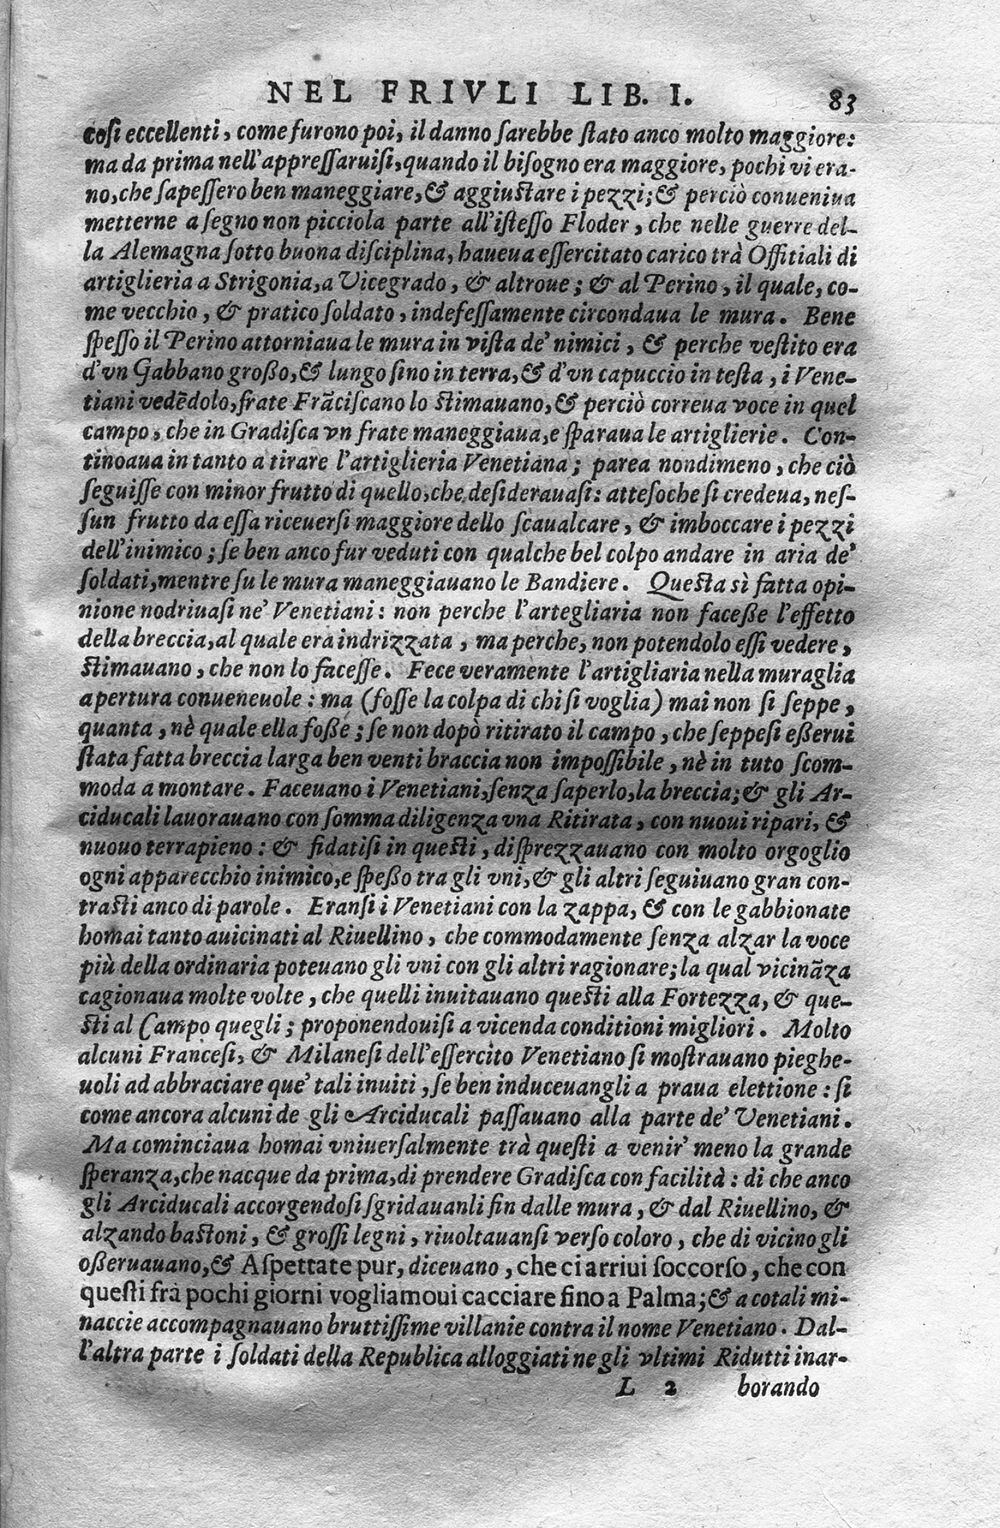 NEL FRIVLI LIB. I. 83
cosi eccellenti, come furono poi, il danno sarebbe stato anco molto maggiore:
ma da prima nell'appressaruisi, quando il bisogno era maggiore, pochi vi era-
no, che sapessero ben maneggiare, & aggiustare i pezzi; & perciò conueniua
metterne a segno non picciola parte all'istesso Floder, che nelle guerre del-
la Alemagna sotto buona disciplina, haueua essercitato carico trà Offitiali di
artiglieria a Strigonia, a Vicegrado, & altroue; & al Perino, il quale, co-
me vecchio, & pratico soldato, indefessamente circondaua le mura. Bene
spesso il Perino attorniaua le mura in vista de' nimici, & perche vestito era
d'vn Gabbano grosso, & lungo sino in terra, & d'vn capuccio in testa, i Vene-
tiani vedēdolo, frate Frāciscano lo stimauano, & perciò correua voce in quel
campo, che in Gradisca vn frate maneggiaua, e sparaua le artiglierie. Con-
tinoaua in tanto a tirare l'artiglieria Venetiana; parea nondimeno, che ciò
seguisse con minor frutto di quello, che desiderauasi: attesoche si credeua, nes-
sun frutto da essa riceuersi maggiore dello scaualcare, & imboccare i pezzi
dell'inimico; se ben anco fur veduti con qualche bel colpo andare in aria de'
soldati, mentre su le mura maneggiauano le Bandiere. Questa sì fatta opi-
nione nodriuasi ne' Venetiani: non perche l'artegliaria non facesse l'effetto
della breccia, al quale era indrizzata, ma perche, non potendolo essi vedere,
stimauano, che non lo facesse. Fece veramente l'artigliaria nella muraglia
apertura conueneuole: ma (fosse la colpa di chi si voglia) mai non si seppe,
quanta, nè quale ella fosse; se non dopò ritirato il campo, che seppesi esserui
stata fatta breccia larga ben venti braccia non impossibile, nè in tuto scom-
moda a montare. Faceuano i Venetiani, senza saperlo, la breccia; & gli Ar-
ciducali lauorauano con somma diligenza vna Ritirata, con nuoui ripari, &
nuouo terrapieno: & fidatisi in questi, disprezzauano con molto orgoglio
ogni apparecchio inimico, e spesso tra gli vni, & gli altri seguiuano gran con-
trasti anco di parole. Eransi i Venetiani con la zappa, & con le gabbionate
homai tanto auicinati al Riuellino, che commodamente senza alzar la voce
più della ordinaria poteuano gli vni con gli altri ragionare; la qual vicināza
cagionaua molte volte, che quelli inuitauano questi alla Fortezza, & que-
sti al Campo quegli; proponendouisi a vicenda conditioni migliori. Molto
alcuni Francesi, & Milanesi dell'essercito Venetiano si mostrauano pieghe-
uoli ad abbraciare que' tali inuiti, se ben induceuangli a praua elettione: si
come ancora alcuni de gli Arciducali passauano alla parte de' Venetiani.
Ma cominciaua homai vniuersalmente trà questi a venir' meno la grande
speranza, che nacque da prima, di prendere Gradisca con facilità: di che anco
gli Arciducali accorgendosi sgridauanli fin dalle mura, & dal Riuellino, &
alzando bastoni, & grossi legni, riuoltauansi verso coloro, che di vicino gli
osseruauano, & Aspettate pur, diceuano, che ci arriui soccorso, che con
questi frà pochi giorni vogliamoui cacciare fino a Palma; & a cotali mi-
naccie accompagnauano bruttissime villanie contra il nome Venetiano. Dal-
l'altra parte i soldati della Republica alloggiati ne gli vltimi Ridutti inar-
L 2 borando